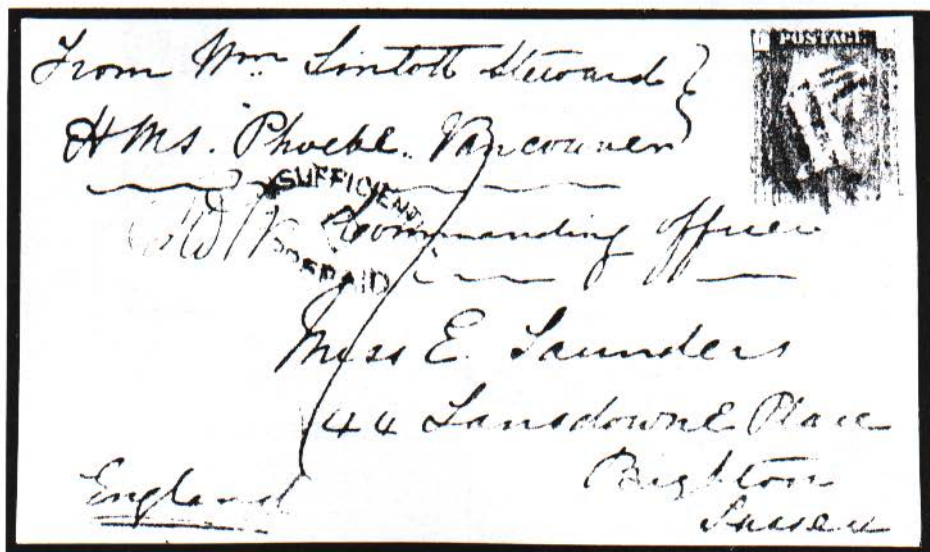 POSTAGE
From Wm Lintott Steward
HMS. Phoebe. Vancouver
SUFFICIENTLY
PREPAID
Commanding Officer
Miss E. Saunders
44 Lansdowne Place
Brighton
Sussex
England